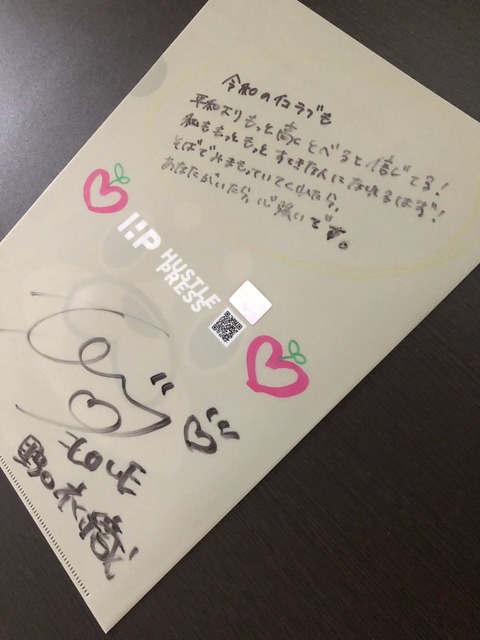 令和のイコラブも
平和よりもっと高くとべると信じてる!
私ももっともっとすてきな人になれるはず!
そばでみまもっていてくれたら、
あなたがいたら、心強いです。
I:HP HUSTLE
PRESS
=LOVE
野口衣織